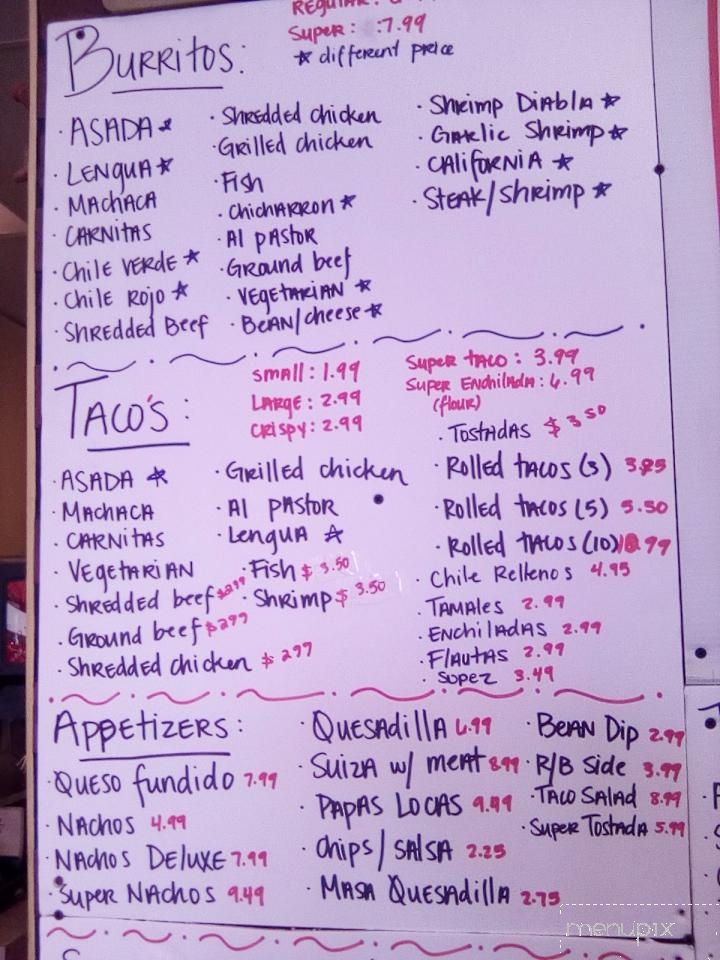 Regular:
Super: 7.99
* different price
Burritos:
· Asada *
· Lengua *
· Machaca
· Carnitas
· Chile Verde *
· Chile Rojo *
· Shredded Beef
· Shredded chicken
· Grilled chicken
· Fish
· Chicharron *
· Al pastor
· Ground beef
· Vegetarian *
· Bean/cheese *
· Shrimp Diabla *
· Garlic Shrimp *
· California *
· Steak/Shrimp *
Taco's:
Small: 1.99
Large: 2.99
Crispy: 2.99
Super taco: 3.99
Super Enchilada: 6.99
(flour)
· Asada *
· Machaca
· Carnitas
· Vegetarian
· Shredded beef $2.99
· Ground beef $2.99
· Shredded chicken $2.99
· Grilled chicken
· Al pastor
· Lengua *
· Fish $3.50
· Shrimp $3.50
· Tostadas $3.50
· Rolled tacos (3)
· Rolled tacos (5) 5.50
· Rolled tacos (10)
· Chile Rellenos 4.95
· Tamales 2.99
· Enchiladas 2.99
· Flautas 2.99
· Sopez 3.49
Appetizers:
· Queso fundido 7.99
· Nachos 4.99
· Nachos Deluxe 7.99
· Super Nachos 9.49
· Quesadilla 6.99
· Suiza w/ meat 8.99
· Papas Locas 9.49
· Chips/Salsa 2.25
· Masa Quesadilla 2.75
· Bean Dip 2.99
· R/B Side 3.99
· Taco Salad 8.99
· Super Tostada 5.99
menupix